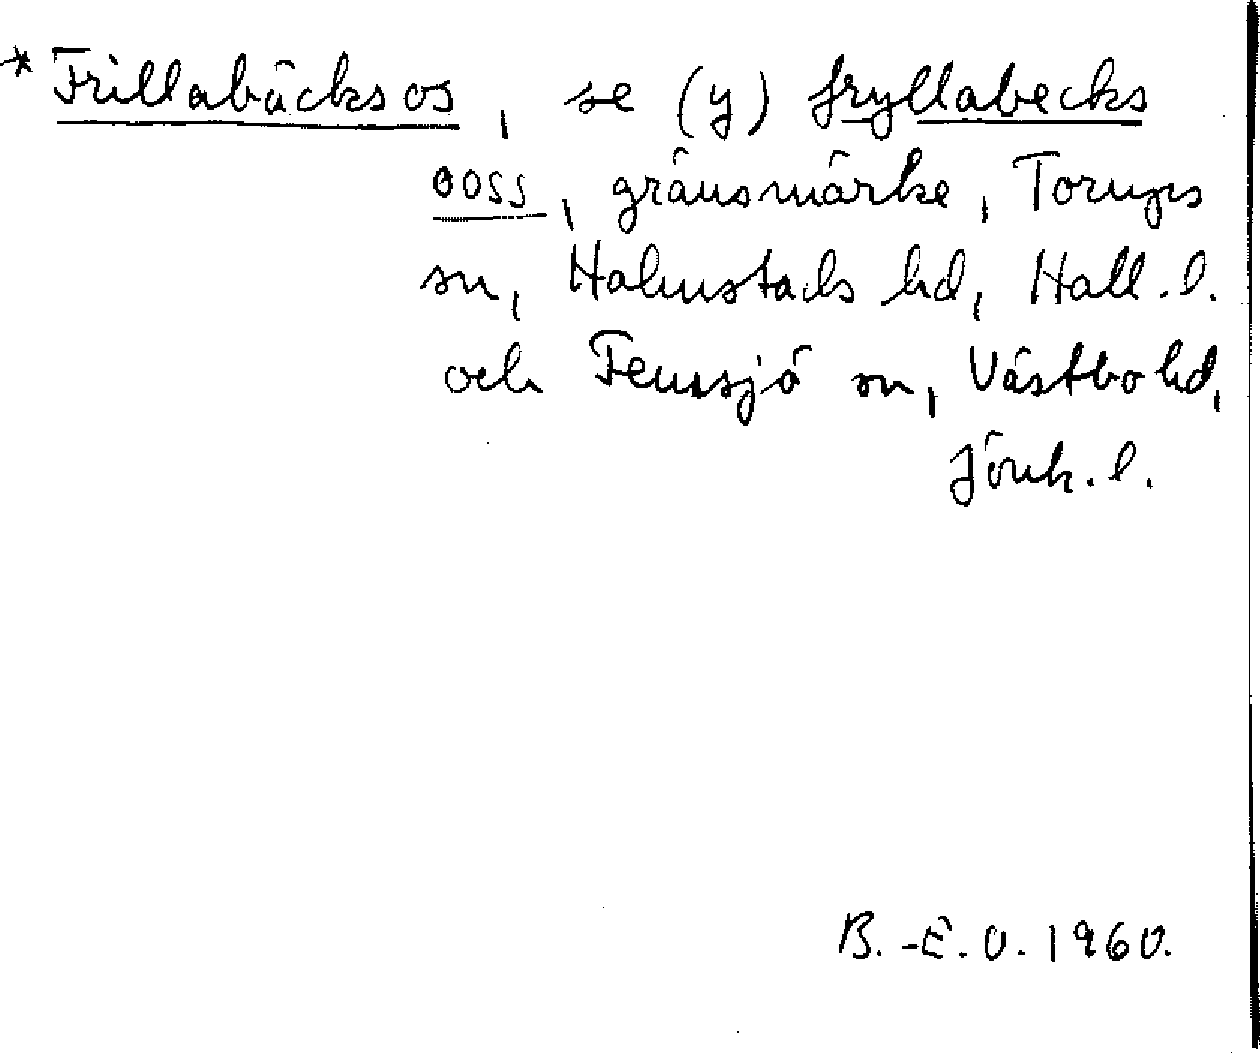 * Frillabäcksos, se (y) fryllabecks
ooss, gränsmärke, Torups
sn, Halmstads hd, Hall. l.
och Femsjö sn, Västbo hd,
Jönk. l.
B.-E.O. 1960.